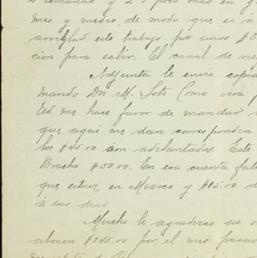 semanas y 2 o tres mas en
mes y medio, de modo que se
arreglar este trabajo por unos $
cion para salir. El canal de
Adjunta le envio copia
mando Dn. M. Soto Como vera
Ud me hace favor de mandar
que aqui me dan
los $45.00 son adelantados. Este
Bracho $50.00. En esa cuenta
que estuve en Mexico y $15.00
a sus dias
Mucho le agradeceré
abonen $245.00 por el mes pasado